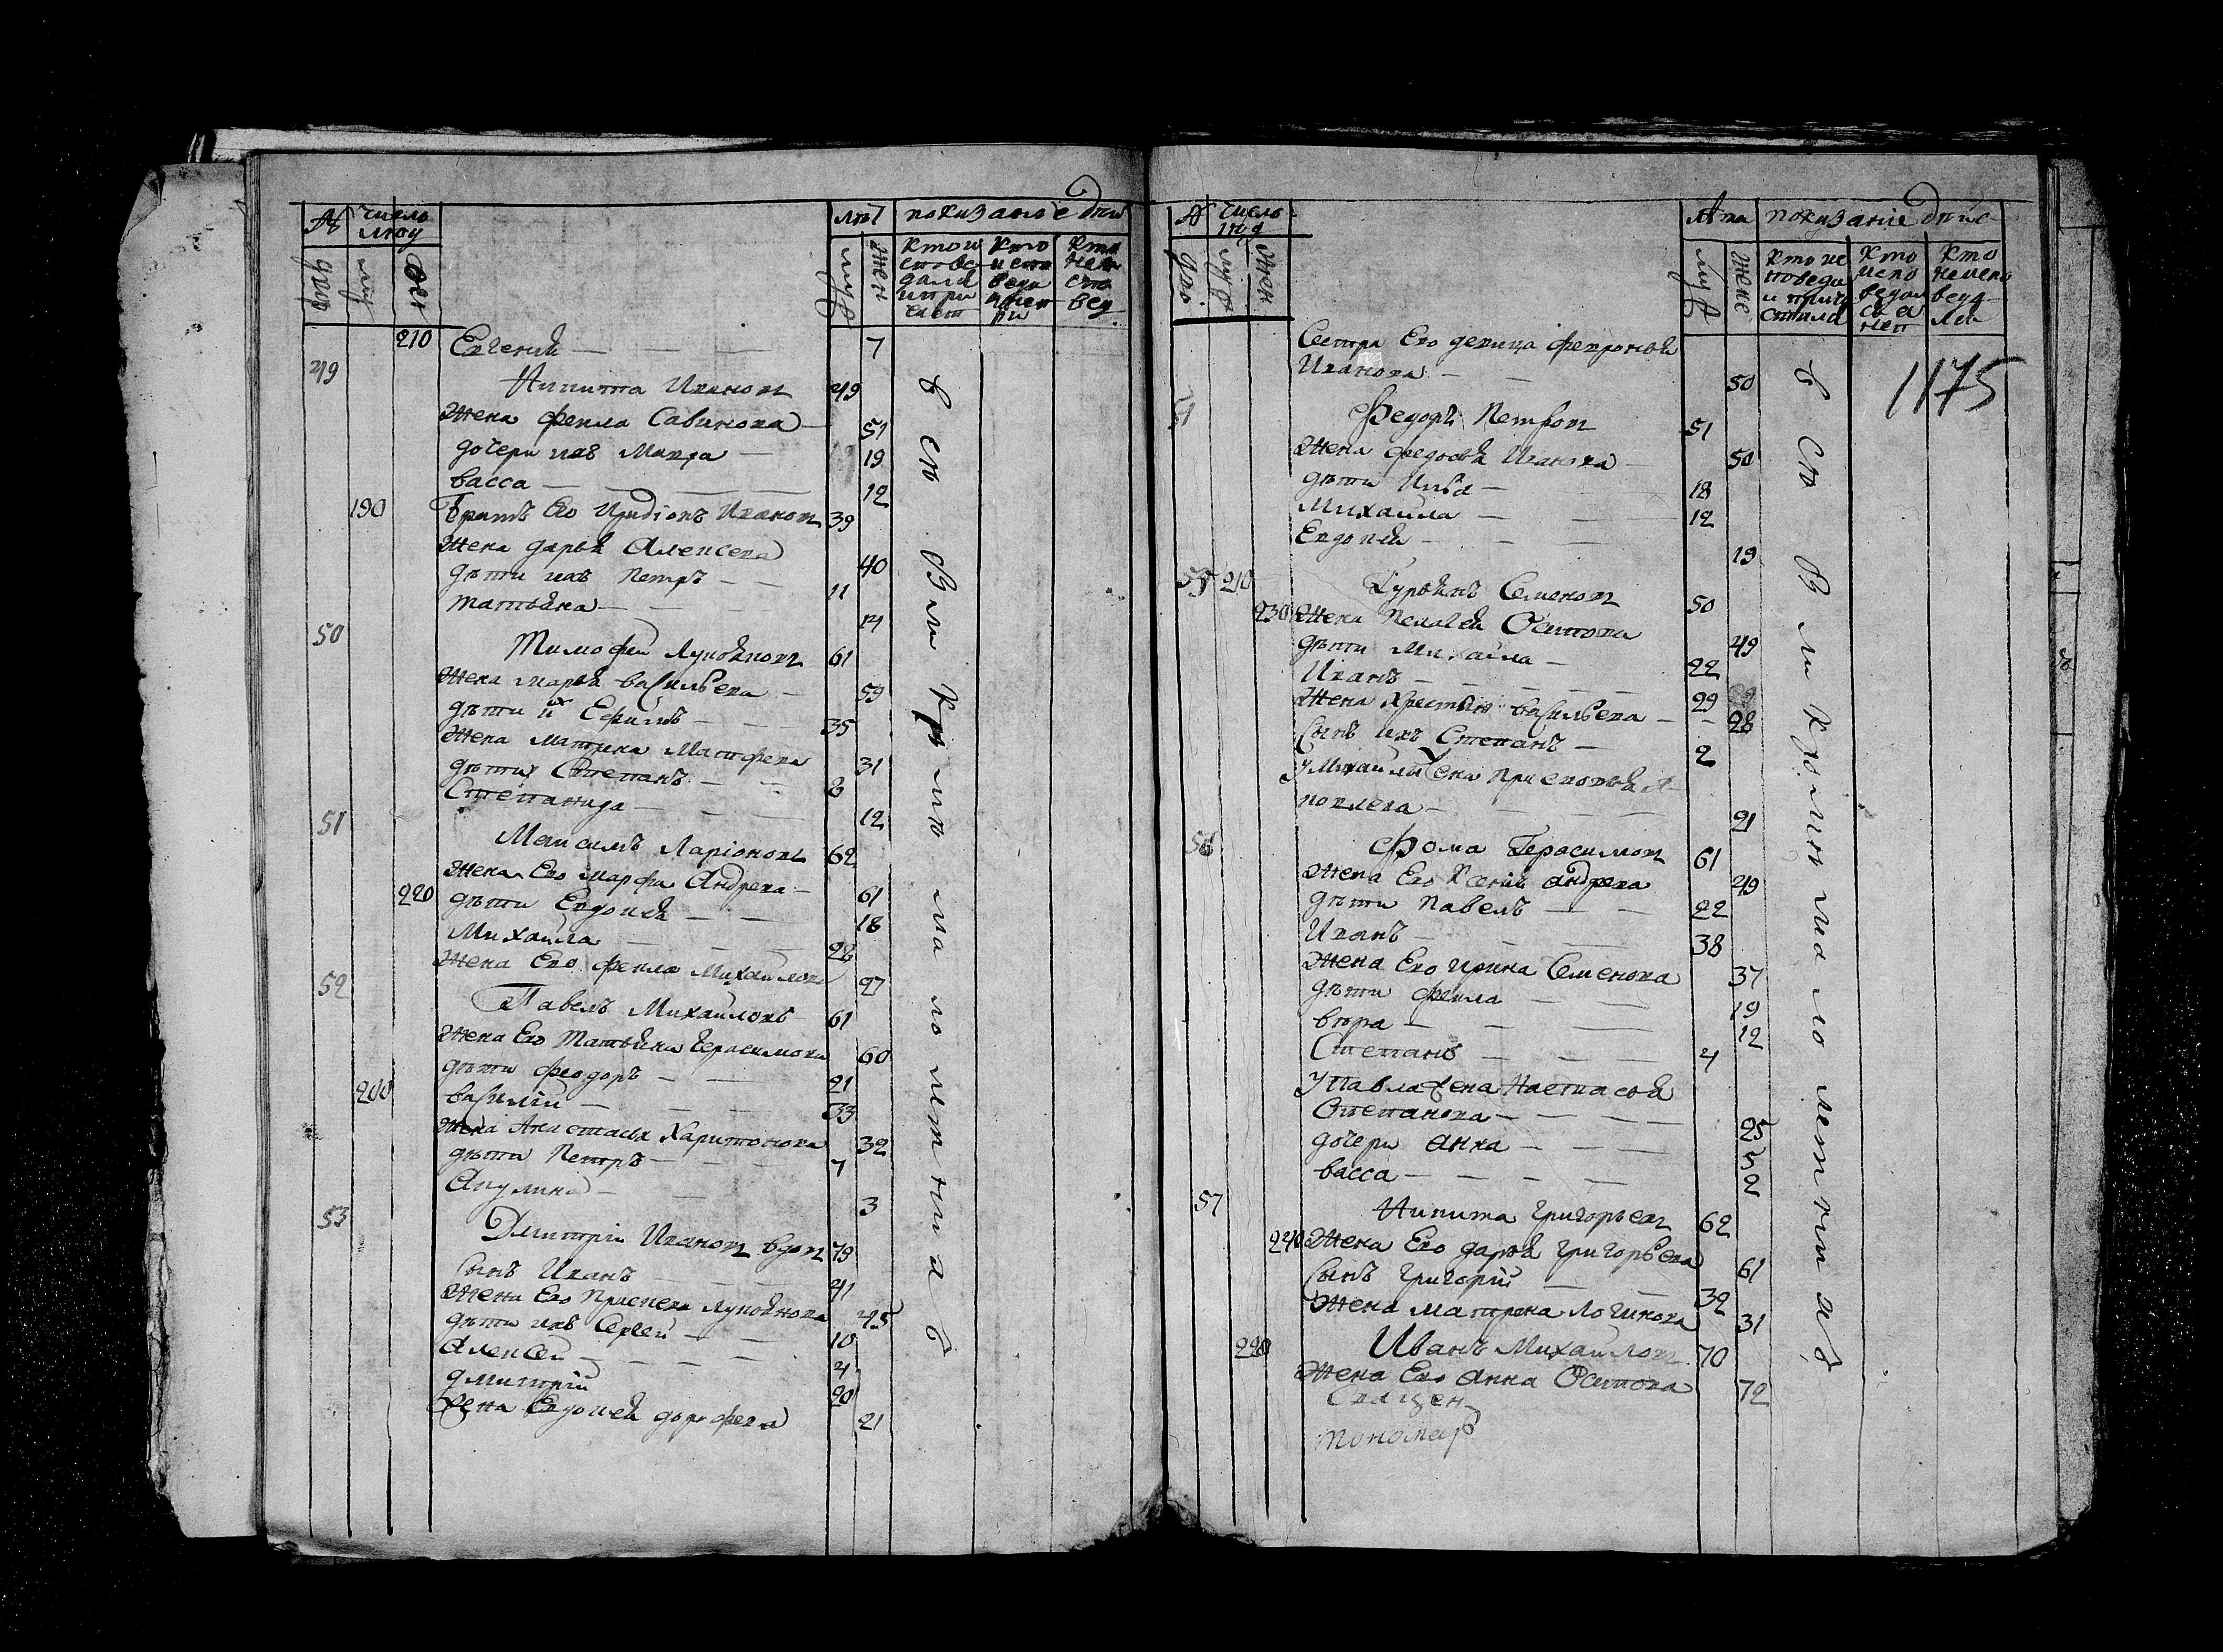 № число людй лѣт показанїе дѣйс
двор муж жен муж жен кто исповедали и при част кто испо веда а не при кто не испо вед
210 Евгений — — — 7
49 Никита Иванов 49
Жена фекла Савинова — 51
дочери ихъ Мавра — 19
васса — — — 12
190 Братъ Его Иродіонъ Иванов 39
Жена дарья Алексева 40
дѣти ихъ Петръ — — 11
татьяна — — —
50 Тимофей Лукоянов 61
Жена марья васильева — 59
дѣти Ефимъ — — 35
Жена матрена Матфеева 31
дѣти Степанъ — — 8
Степанида — — — 12
51 Максимъ Ларіонов 62
Жена Его марфа Андреева — 61
220 дѣти Евдокея — — 18
Михайла — — — 28
Жена Его фекла Михайлова 27
52 Павелъ Михайловъ 61
Жена Его Татьяна Герасимова 60
дѣти феодоръ — — 21
200 василій — — — 33
Жена Анастасья Харитонова 32
дѣти Петръ — — — 7
Акулина — — 3
53 Дмитрій Иванов вдов 79
Сынъ Иванъ — — 41
Жена Его Прасковя Лукоянова 45
дѣти ихъ Сергей — — 10
Алексей — — — — 4
дмитрій 20
Жена Евдокея дорофеева 21
всѣ
№ число люд лѣта показанїе дѣйс
дво муж жен муж женс кто ис поведа и приче стила кто испо ведал ся а нет кто не испо ведал
Сестра Его девица февронья
Иванова — — 50
1175
Федоръ Петров 51
Жена федосья Иванова — 50
дѣти Илья — 18
Михайла — — — 12
Евдокея — — — 19
55 210 Гурьянъ Семенов 50
230 Жена Пелагея Осипова 49
дѣти Михайла — 22
Иванъ — — — — 29
Жена Христинья васильева — 28
Сынъ ихъ Степанъ — 2
У Михайлы жена Прасковья Я
ковлева — — — — 21
56 Фома Герасимов 61
Жена Его Ксенія андреева 49
дѣти Павелъ — — 22
Иванъ — — — 38
Жена Его ирина Семенова 37
дѣти фекла — — — 19
вѣра — — — 12
Степанъ — — — 4
У Павла жена Настасья
Степанова — — — — 25
дочери анна — — — 5
васса — — — — 2
57 Никита Григорьев 62
240 Жена Его дарья Григорьева 61
Сынъ Григорій — — 32
Жена матрена Логинова 31
220 Иванъ Михайлов 70
Жена Его анна Осипова 72
Священ
Пономарь
всѣ